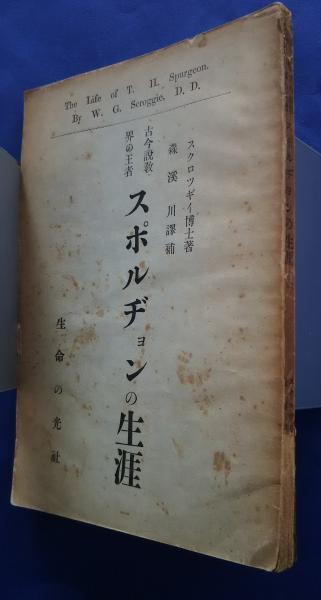 The Life of T. H. Spurgeon.
By W. G. Scroggie, D. D.
スクロツギイ博士著
森溪川譯補
古今説教
界の王者
スポルヂョンの生涯
生命の光社
ルヂョンの生涯